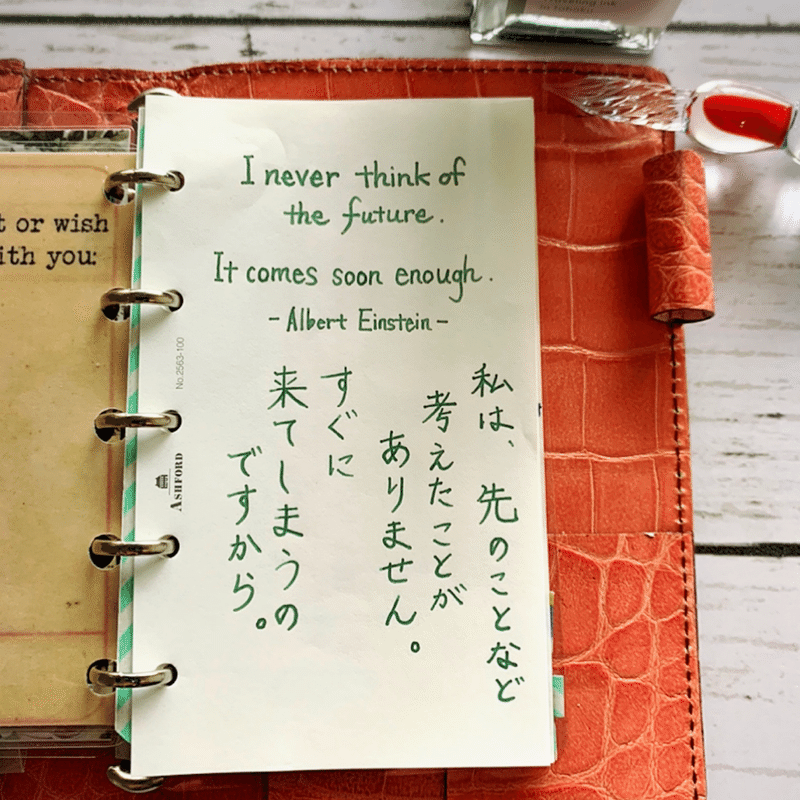 t or wish
ith you:
I never think of
the future.
It comes soon enough.
- Albert Einstein -
私は、先のことなど
考えたことが
ありません。
すぐに
来てしまうの
ですから。
No.2563-100
ASHFORD